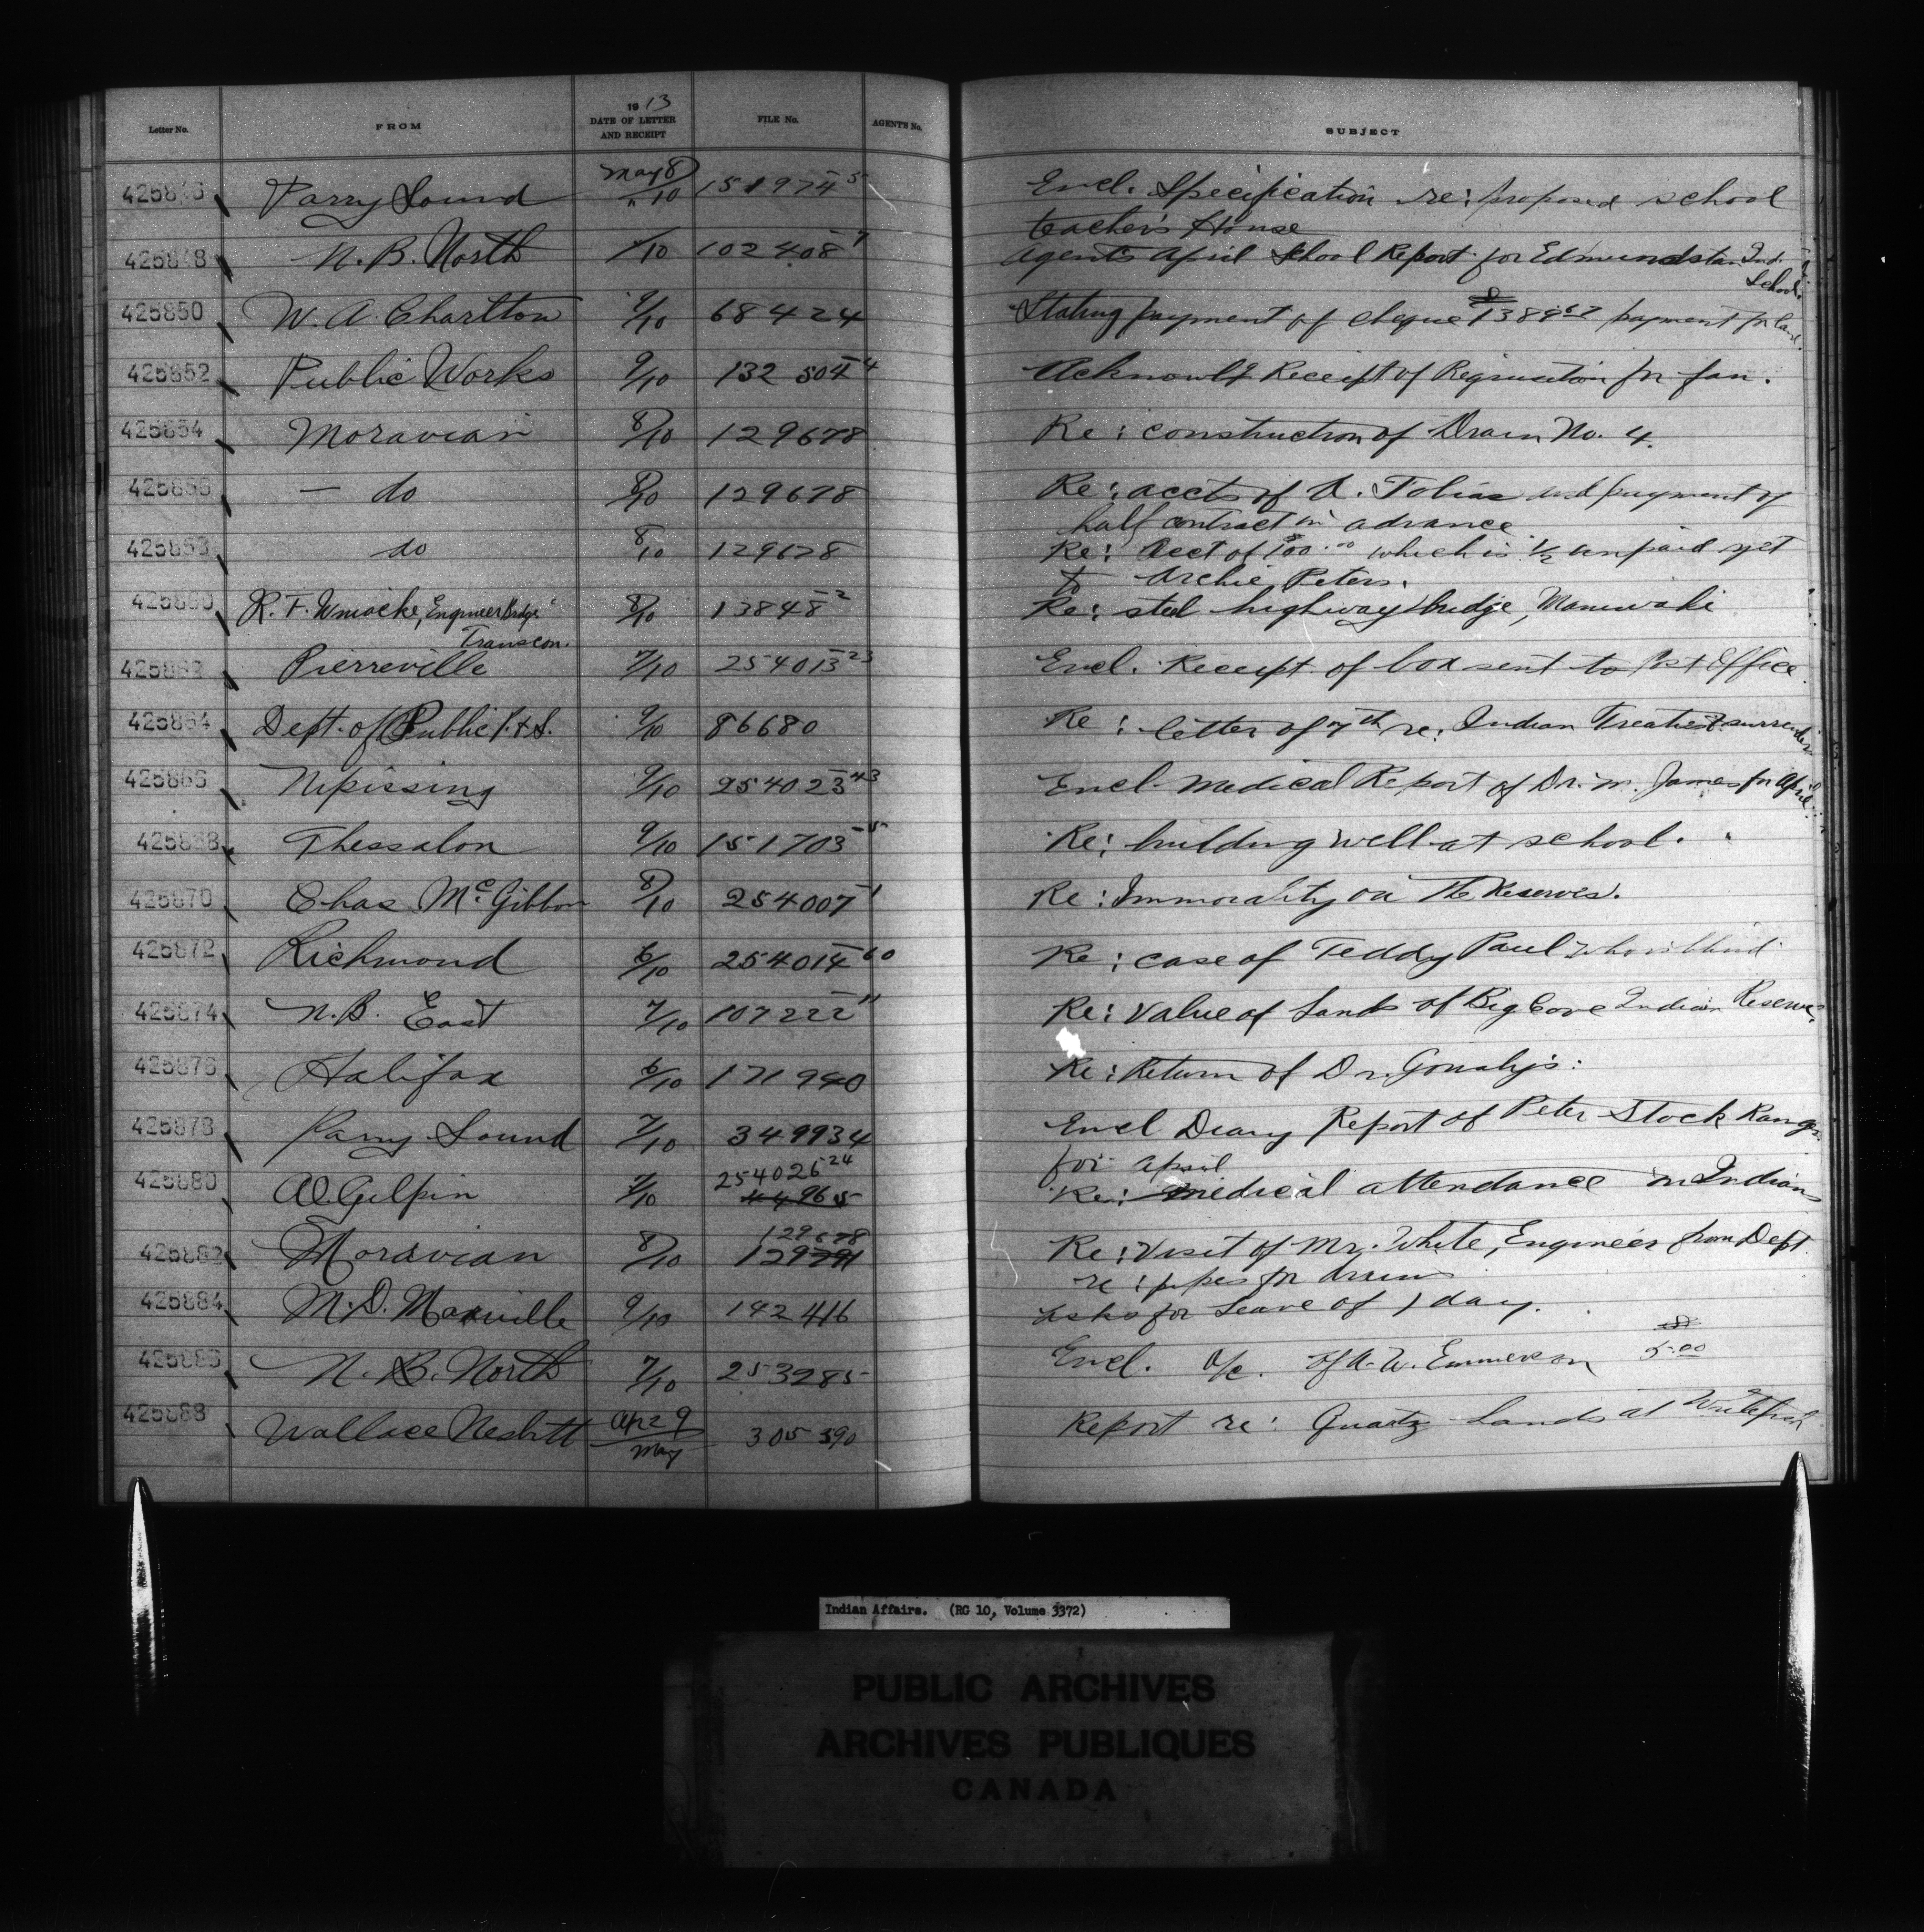 Letter No. FROM 1913 DATE OF LETTER AND RECEIPT FILE No. AGENTS No. SUBJECT
425846 Parry Sound May 8/10 151974-5 Encl. Specification re: proposed school
teacher's House
425848 N. B. North /10 102408-7 Agents April School Report for Edmundston Ind.
School.
425850 W. A. Charlton 9/10 68424 Stating payment of cheque $1389.67 payment for land.
425852 Public Works 9/10 132504-4 Acknowlg Receipt of Requisition for fan.
425854 Moravian 8/10 129678 Re: construction of Drain No. 4.
425856 — do 8/10 129678 Re: accts of A. Tobias and payment of
half contract in advance
425858 do 8/10 129678 Re: Acct of $100.00 which is 1/2 unpaid yet
to Archie Peters.
425860 R. F. Engineer Bridge 8/10 13848-2 Re: steel highway bridge, Maniwaki
Transcon.
425862 Pierreville 7/10 254013-23 Encl. Receipt of box sent to Post Office.
425864 Dept. of Public P. & S. 9/10 86680 Re: letter of 7th re: Indian Treaties & surrenders
425866 Nipissing 9/10 254023-43 Encl. Medical Report of Dr. M. James for April.
425868 Thessalon 9/10 151703-5 Re: building well at school.
425870 Chas McGibbon 8/10 254007-1 Re: Immorality on the Reserves.
425872 Richmond 6/10 254014-60 Re: case of Teddy Paul who is blind
425874 N. B. East 7/10 107222-11 Re: Value of Lands of Big Cove Indian Reserve.
425876 Halifax 6/10 171940 Re: Return of Dr.
425878 Parry Sound 7/10 349934 Encl Diary Report of Peter Stock Ranger
for April
425880 A. O. Gilpin 7/10 254026-24 44965 Re: Medical attendance on Indians
425882 Moravian 8/10 129678 129791 Re: Visit of Mr. White, Engineer from Dept.
re: pipes for drains
425884 M. D. Maxville 9/10 142416 Asks for Leave of 1 day.
425886 N. B. North 7/10 253285 Encl. a/c. of A. W. Emmerson $5.00
425888 Wallace Nesbitt Apr 29/May 305390 Report re: Quartz Lands at Whitefish
Indian Affairs. (RG 10, Volume 3372)
PUBLIC ARCHIVES
ARCHIVES PUBLIQUES
CANADA